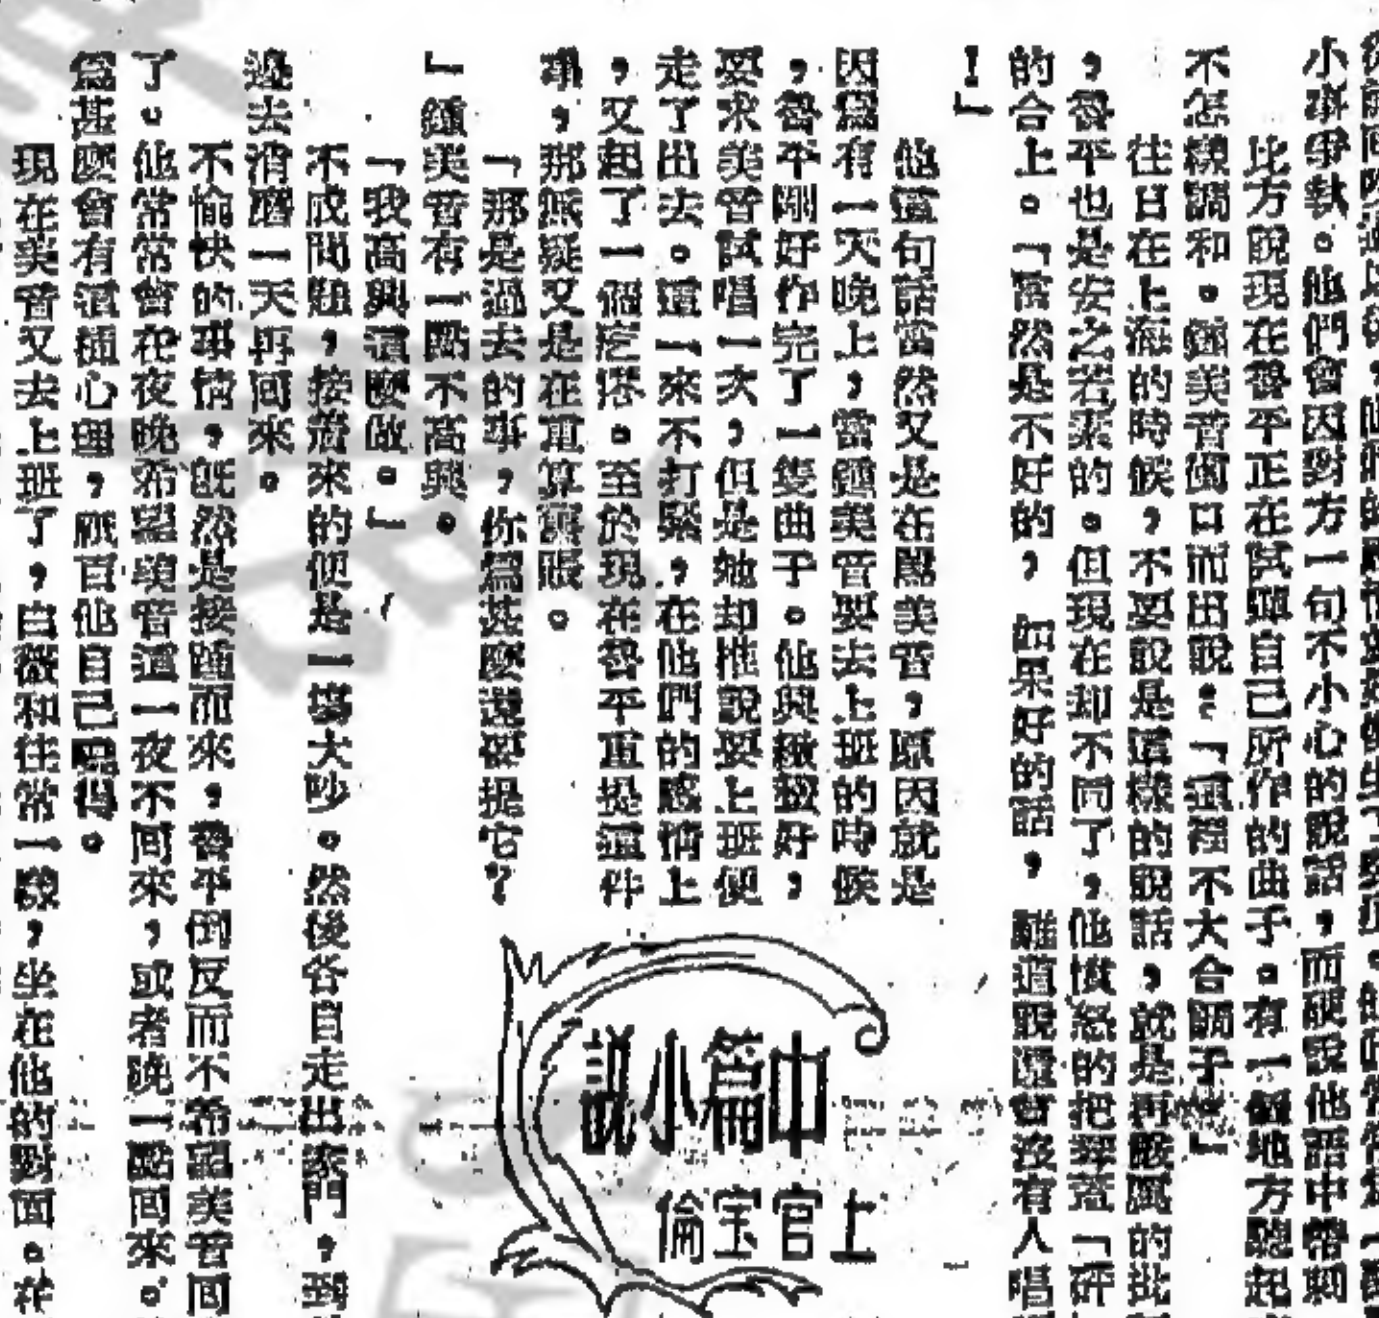 小事爭執。他們會因對方一句不小心的說話，而硬說他語中帶刺
比方說現在魯平正在試彈自己所作的曲子。有一個地方聽起
不怎樣調和。鍾美音衝口而出說：「這裡不大合調子。」
往日在上海的時候，不要說是這樣的說話，就是再嚴厲的批
，魯平也是安之若素的。但現在却不同了，他憤怒的把琴蓋「砰
的合上。「當然是不好的，如果好的話，難道說還會沒有人唱
！」
他這句話當然又是在鬧美音，原因就是
因爲有一天晚上，當鍾美音要去上班的時候
，魯平剛好作完了一隻曲子。他興緻挺好，
要求美音試唱一次，但是她却推說要上班便
走了出去。這一來不打緊，在他們的感情上
，又起了一個疙瘩。至於現在魯平重提這件
事，那無疑又是在重算舊賬。
「那是過去的事，你爲甚麼還要提它？
」鍾美音有一點不高興。
「我高興這麼做。」
不成問題，接着來的便是一場大吵。然後各自走出家門，到
過去消磨一天再回來。
不愉快的事情，既然是接踵而來，魯平倒反而不希望美音回
了。他常常會在夜晚希望美音這一夜不回來，或者晚一點回來。
爲甚麼會有這種心理，祇有他自己曉得。
現在美音又去上班了，白薇和往常一樣，坐在他的對面。在
中篇小說
上官宝倫